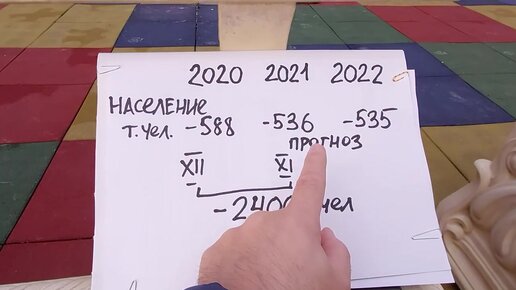 2020 2021 2022
НАСЕЛЕНИЕ
Т.ЧЕЛ. -588 -536 -535
ПРОГНОЗ
XII XI
ЧЕЛ